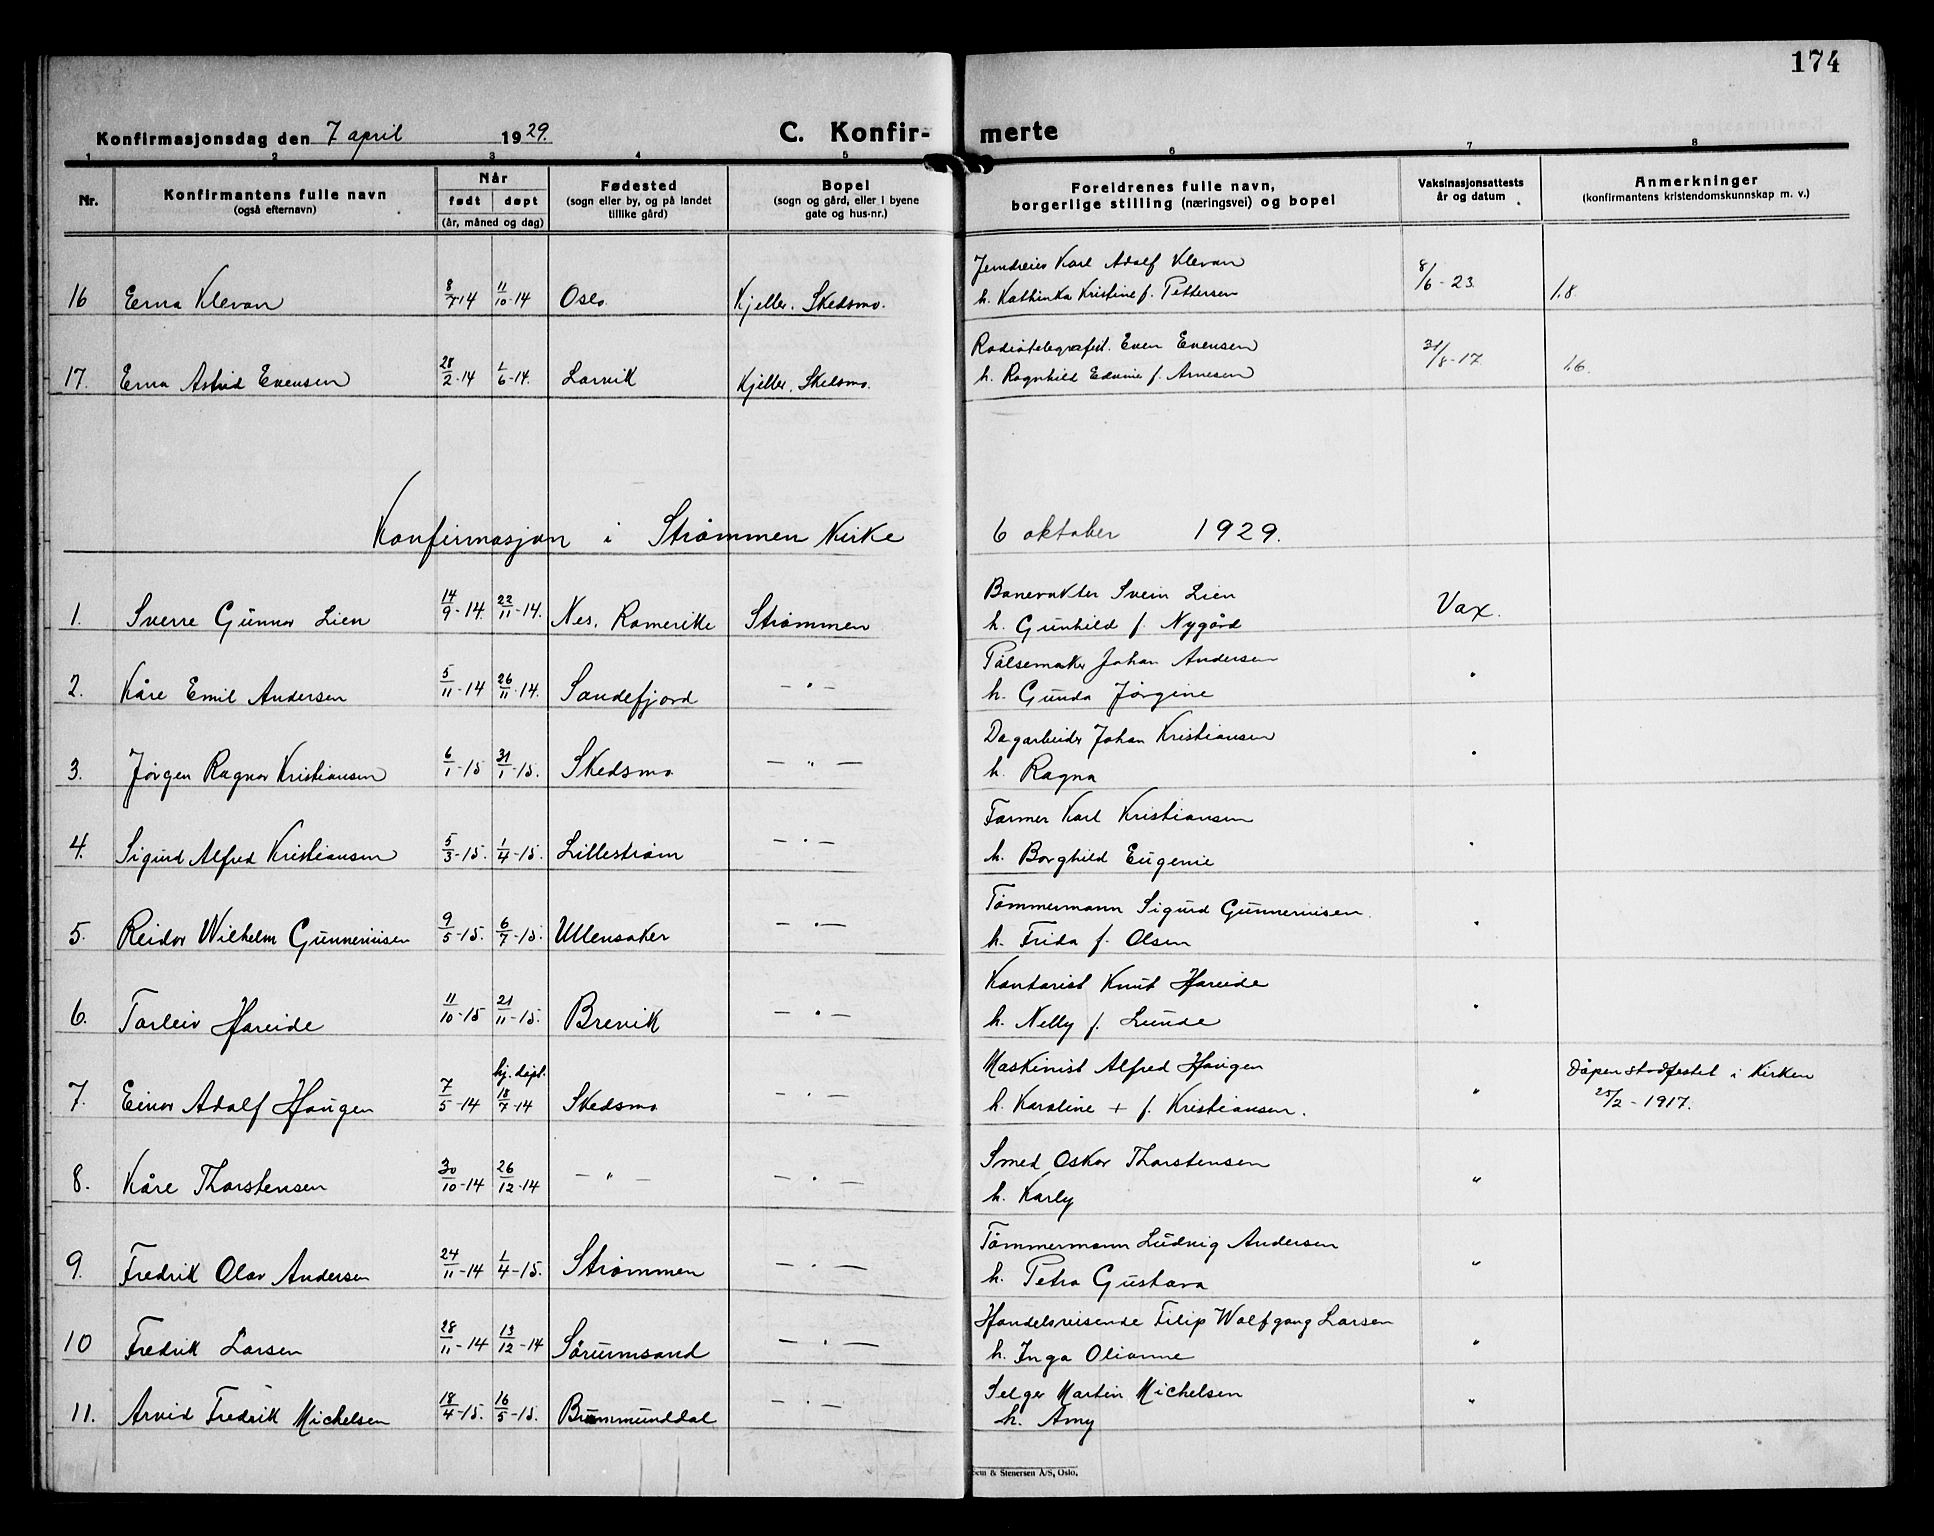 174
Konfirmasjonsdag den 7 april 1929. C. Konfir- merte
1 2 3 4 5 6 7 8
Nr. Konfirmantens fulle navn (også efternavn) Når født døpt (år, måned og dag) Fødested (sogn eller by, og på landet tillike gård) Bopel (sogn og gård, eller i byene gate og hus-nr.) Foreldrenes fulle navn, borgerlige stilling (næringsvei) og bopel Vaksinasjonsattests år og datum Anmerkninger (konfirmantens kristendomskunnskap m. v.)
Jerndreier Karl Adolf Klevan
16 Erna Klevan 8/7 14 11/10-14 Oslo Kjeller. Skedsmo. h. Kathinka Kristine f. Pettersen 8/6-23. 1.8.
Radiotelegrafist. Even Evensen
17. Erna Astrid Evensen 28/2-14 1/6-14. Larvik Kjeller. Skedsmo. h. Ragnhild Edvine f. Arnesen 31/8-17 1.6.
Konfirmasjon i Strømmen Kirke 6 oktober 1929.
Banevakter Svein Lien
1. Sverre Gunnar Lien 14/9-14. 22/11-14. Nes, Romerike Strømmen h. Gunhild f. Nygård Vax.
Pølsemaker Johan Andersen
2. Kåre Emil Andersen 5/11-14 26/11-14. Sandefjord — " — h. Gunda Jørgine "
Dagarbeider Johan Kristiansen
3. Jørgen Ragnar Kristiansen 6/1-15 31/1-15. Skedsmo — " — h. Ragna "
Farmer Karl Kristiansen
4. Sigurd Alfred Kristiansen 5/3-15. 1/4-15. Lillestrøm — " — h. Borghild Eugenie "
Tømmermann Sigurd Gunneriusen.
5. Reidar Wilhelm Gunneriusen 9/5-15. 6/7-15. Ullensaker — " — h. Frida f. Olsen "
Kontorist Knut Hareide
6. Torleiv Hareide 11/10-15 21/11-15. Brevik — " — h. Nelly f. Lunde "
hj. døpt. Maskinist Alfred Haugen Dåpen stadfestet i Kirken
7. Einar Adolf Haugen 7/5-14 18/7-14 Skedsmo — " — h. Karoline + f. Kristiansen. " 25/2-1917.
Smed Oskar Thorstensen
8. Kåre Thorstensen 30/10-14 26/12-14 — " — — " — h. Karly "
Tømmermann Ludvig Andersen
9. Fredrik Olav Andersen 24/11-14 1/4-15. Strømmen — " — h. Petra Gustava "
Handelsreisende Filip Wolfgang Larsen
10 Fredrik Larsen 28/11-14 13/12-14 Sørumsand — " — h. Inga Olianne "
Selger Martin Michelsen
11. Arvid Fredrik Michelsen 18/4-15. 16/5-15. Brummunddal — " — h. Amy "
& Stenersen A/S, Oslo.